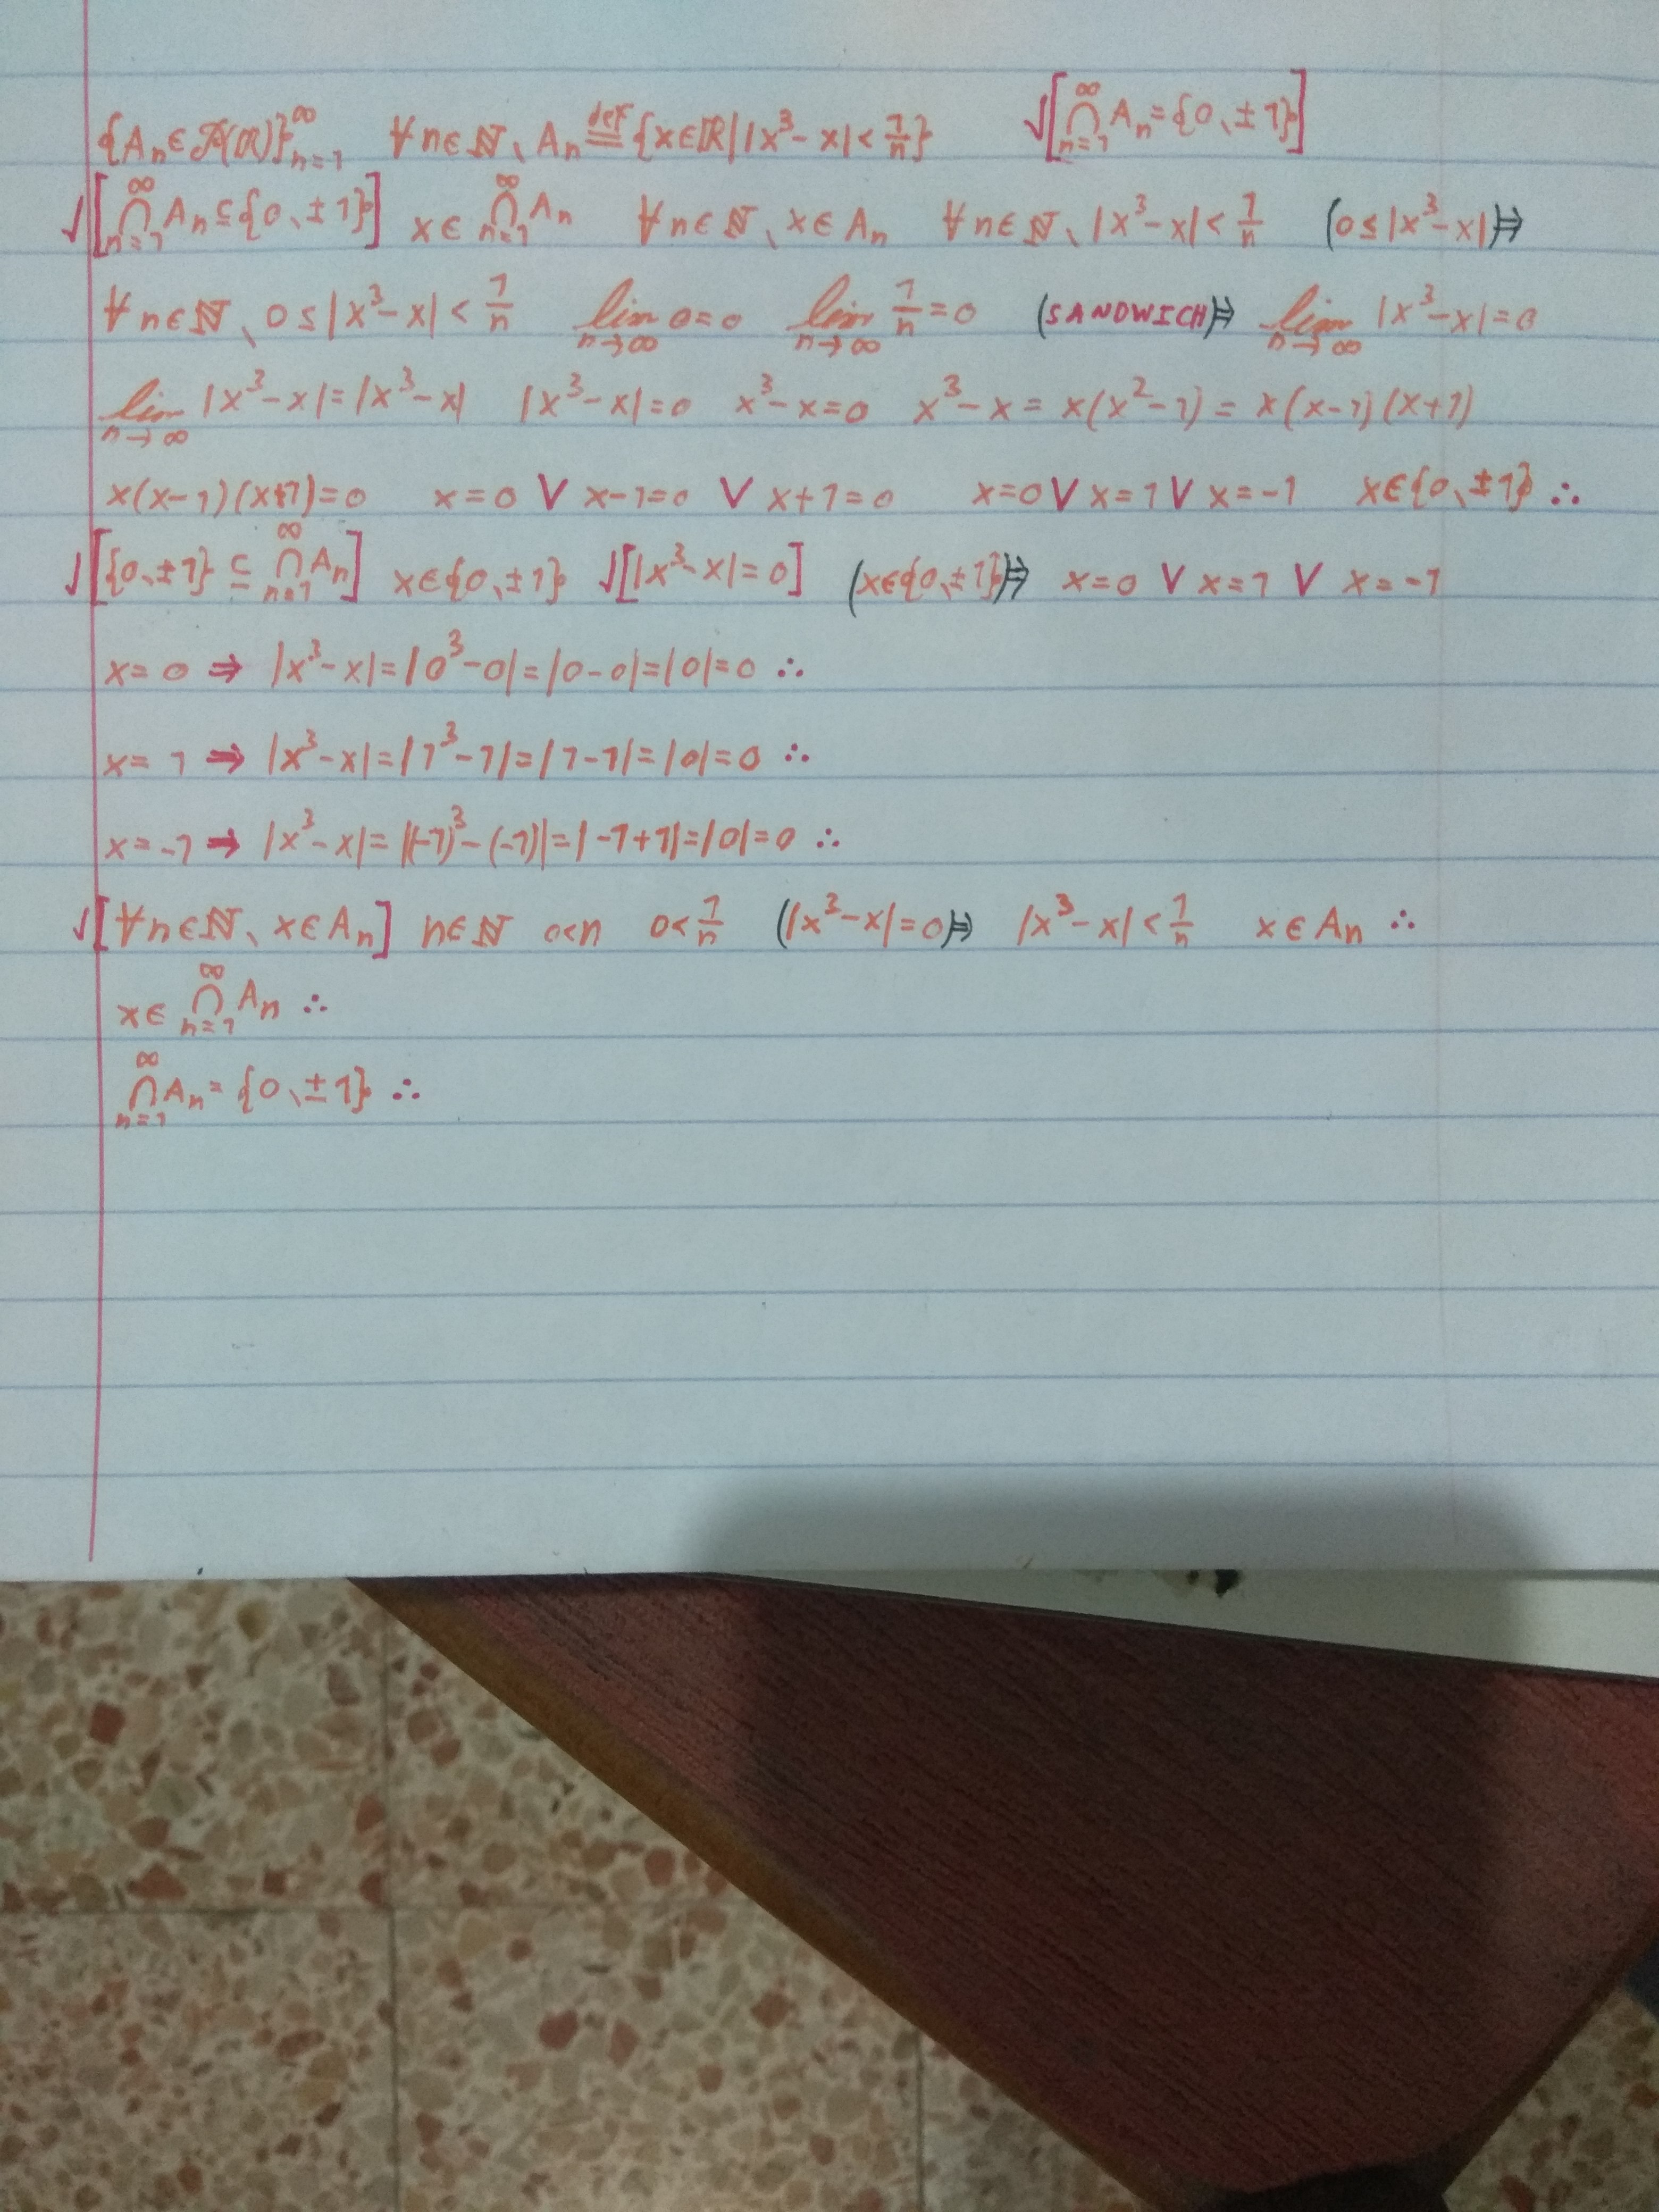 {Aₙ∈𝒫(ℝ)}ₙ₌₁^∞ ∀n∈ℕ، Aₙ ≝ {x∈ℝ | |x³-x|<1/n} √[⋂ₙ₌₁^∞ Aₙ={0، ±1}]
√[⋂ₙ₌₁^∞ Aₙ⊆{0، ±1}] x∈⋂ₙ₌₁^∞ Aₙ ∀n∈ℕ، x∈Aₙ ∀n∈ℕ، |x³-x|<1/n (0≤|x³-x|)⇒
∀n∈ℕ، 0≤|x³-x|<1/n lim_{n→∞} 0=0 lim_{n→∞} 1/n=0 (SANDWICH)⇒ lim_{n→∞} |x³-x|=0
lim_{n→∞} |x³-x|=|x³-x| |x³-x|=0 x³-x=0 x³-x=x(x²-1)=x(x-1)(x+1)
x(x-1)(x+1)=0 x=0 ∨ x-1=0 ∨ x+1=0 x=0 ∨ x=1 ∨ x=-1 x∈{0، ±1} ∴
√[{0، ±1}⊆⋂ₙ₌₁^∞ Aₙ] x∈{0، ±1} √[|x³-x|=0] (x∈{0، ±1})⇒ x=0 ∨ x=1 ∨ x=-1
x=0 ⇒ |x³-x|=|0³-0|=|0-0|=|0|=0 ∴
x=1 ⇒ |x³-x|=|1³-1|=|1-1|=|0|=0 ∴
x=-1 ⇒ |x³-x|=|(-1)³-(-1)|=|-1+1|=|0|=0 ∴
√[∀n∈ℕ، x∈Aₙ] n∈ℕ 0<n 0<1/n (|x³-x|=0)⇒ |x³-x|<1/n x∈Aₙ ∴
x∈⋂ₙ₌₁^∞ Aₙ ∴
⋂ₙ₌₁^∞ Aₙ={0، ±1} ∴